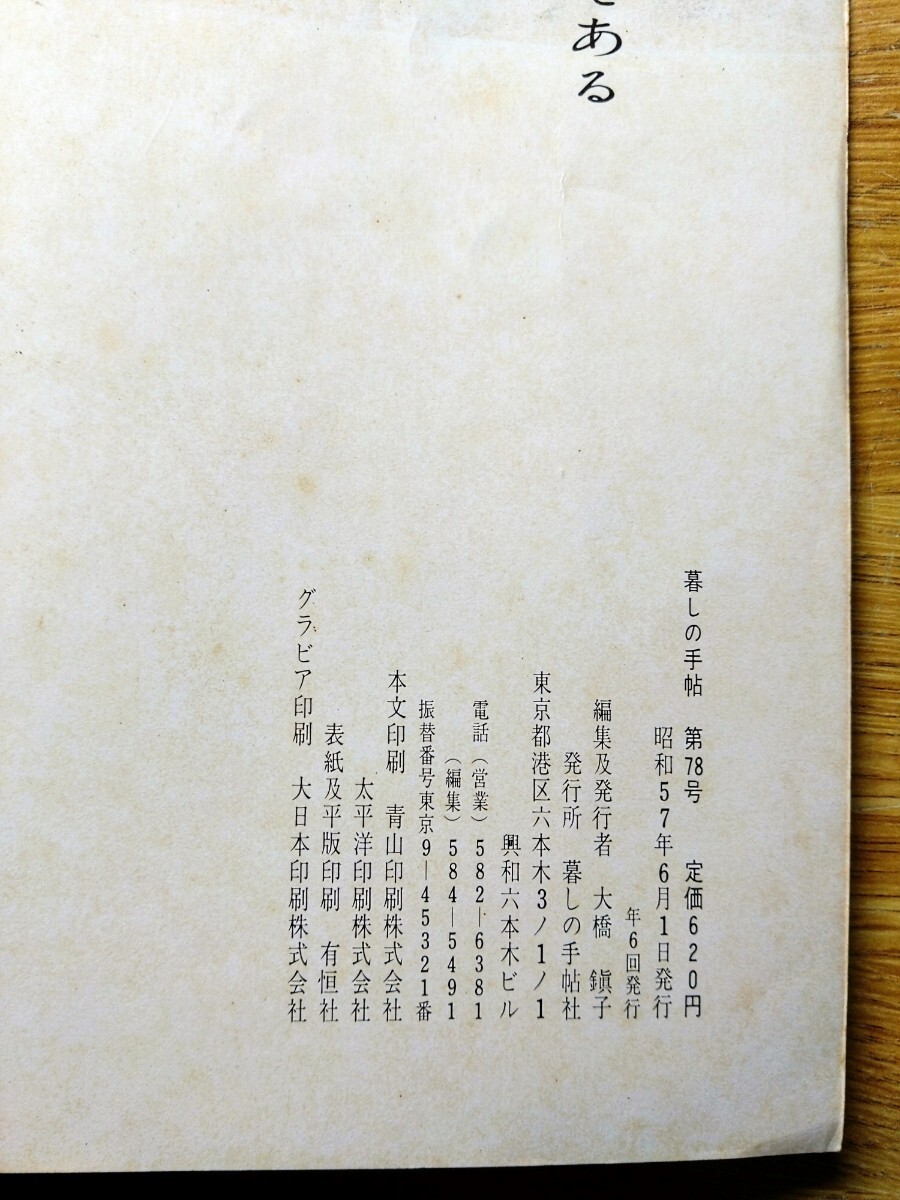 である
暮しの手帖 第78号 定価620円
昭和57年6月1日発行
年6回発行
編集及発行者 大橋 鎭子
発行所 暮しの手帖社
東京都港区六本木3ノ1ノ1
興和六本木ビル
電話(営業)582―6381
(編集)584―5491
振替番号東京9―45321番
本文印刷 青山印刷株式会社
太平洋印刷株式会社
表紙及平版印刷 有恒社
グラビア印刷 大日本印刷株式会社